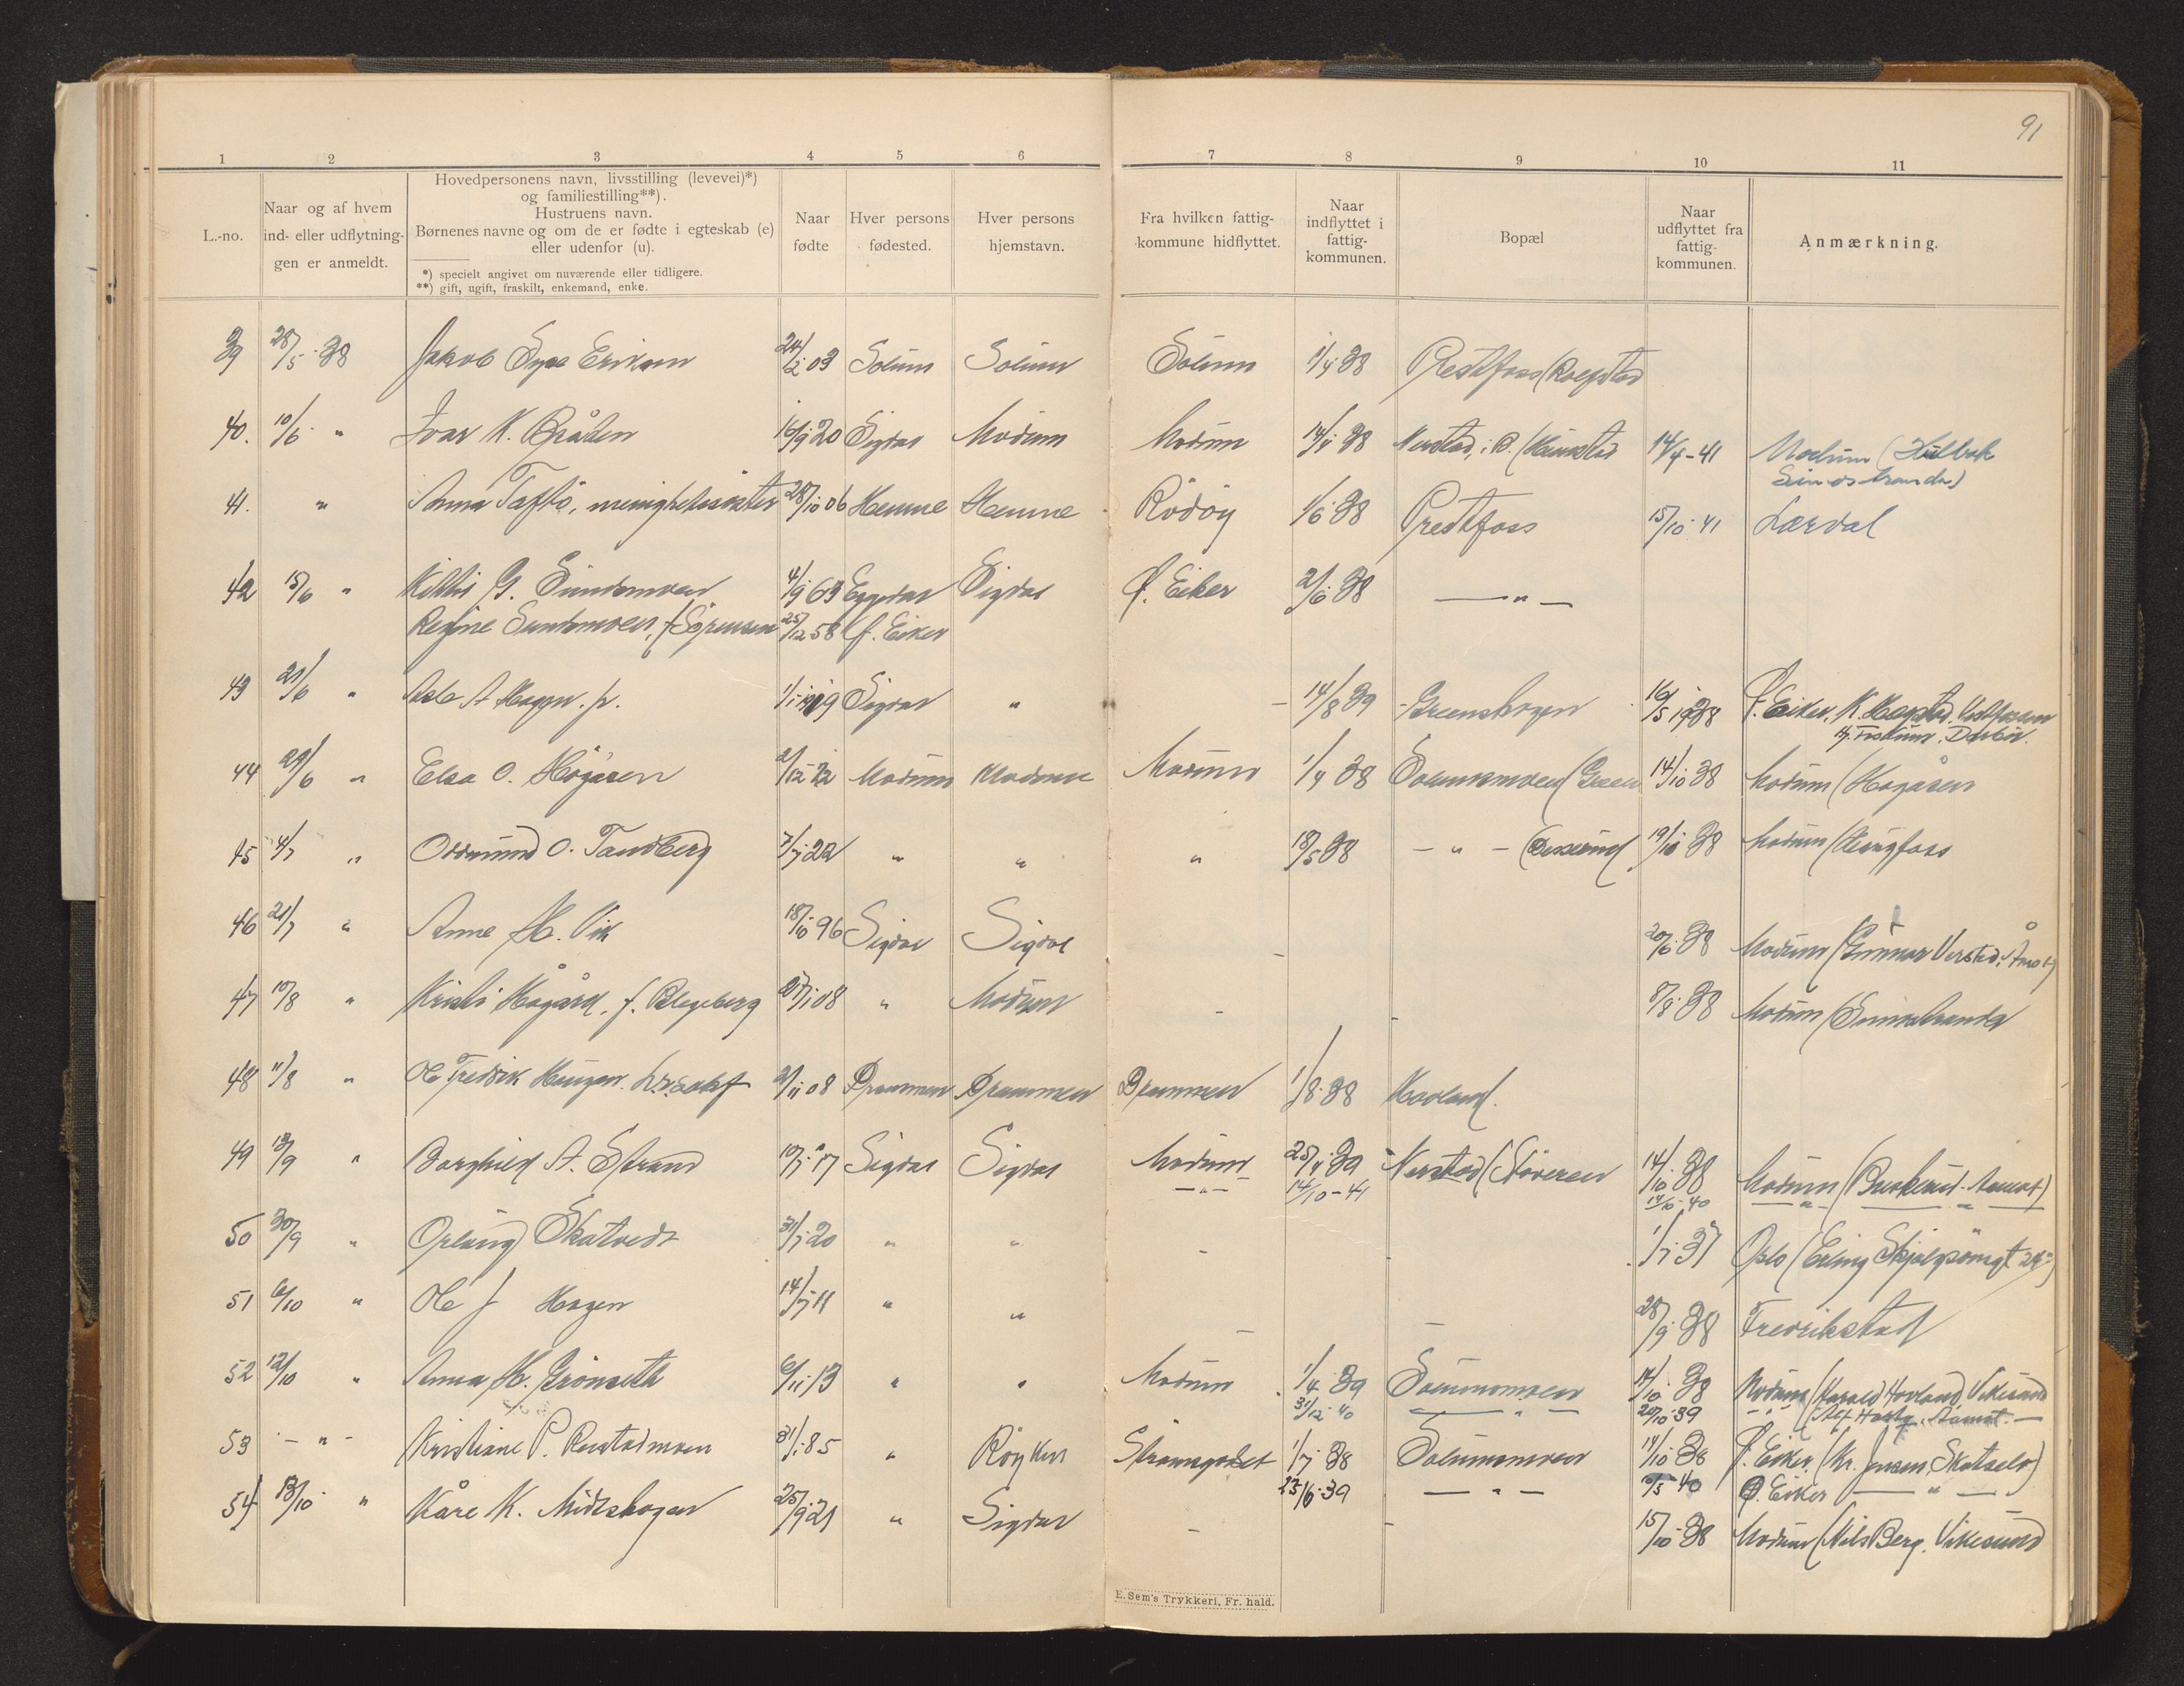 91
1 2 3 4 5 6 7 8 9 10 11
L.-no.
Naar og af hvem
ind- eller udflytnin-
gen er anmeldt.
Hovedpersonens navn, livsstilling (levevei)*)
og familiestilling**).
Hustruens navn.
Børnenes navne og om de er fødte i egteskab (e)
eller udenfor (u).
*) specielt angivet om nuværende eller tidligere.
**) gift, ugift, fraskilt, enkemand, enke.
Naar
fødte
Hver persons
fødested.
Hver persons
hjemstavn.
Fra hvilken fattig-
kommune hidflyttet.
Naar
indflyttet i
fattig-
kommunen.
Bopæl
Naar
udflyttet fra
fattig-
kommunen.
Anmærkning.
39 28/5-38 Jakob Eriksen 24/2 03 Solum Solum Solum 1/4 38 Prestfoss
40. 10/6 " Ivar K. Bråten 20 Sigdal Modum Modum 14/4 38 Nerstad 14/4-41 Modum
41. " Anna Taftö, menighetssöster 28/10 06 Hemne Hemne Rödöy 1/6 38 Prestfoss 15/10 41 Lærdal
42 15/6 " Kittil G. Sundsmoen 4/9 63 Eggedal Sigdal Ø. Eiker 2/6 38 — " —
Regine Sundsmoen, f. Sörensen 25/12 58 Ø. Eiker
43 21/6 " Asle A Hagen. jr. Sigdal " - 14/8 39 Greenskogen 16/5 1938 Ø. Eiker, K. Hogstad, Vestfossen
44 29/6 " Elsa O. Högåsen 2/12 22 Modum Modum Modum 1/4 38 Solumsmoen (Green 14/10 38 Modum (Hagåsen
45 4/7 " Oddmund O. Tandberg 7/7 22 " " " 18/5 38 — " — 19/10 38 Modum (Geithfoss
46 21/7 " Anne H. Vik 18/10 96 Sigdal Sigdal - 20/6 38 Modum (Gunnar Verstad, Åmot)
47 10/8 " Kristi Hågård, f. Blegeberg 27/1 08 " Modum - - 8/8 38 Modum (Simostranda
48 11/8 " Ole Fredrik Haugen. 2/11 08 Drammen Drammen Drammen 1/8 38 Hovland.
49 13/9 " Borghild A. Strand 10/7 17 Sigdal Sigdal Modum 25/4 39 Nerstad (Stöveren 14/10 38 Modum (Buskerud. Åmot)
— " — 14/10-41 14/10 40 — " —
50 30/9 " Erling Skatvedt 31/7 20 " " - - 1/7 37 Oslo (Erling Skjalgsönsgt 24
51 6/10 " Ole J Hagen 14/7 11 " " - - 28/9 38 Fredrikstad
52 12/10 " Anna H. Grönseth 6/11 13 " " Modum 1/4 39 Solumsmoen 17/10 38 Modum (Harald Hovland, Vikesund
31/12 40 — " — 20/10 39 — " —
53 — " — Kristiane P. Renstadmoen 31/1 85 " Röyken Strömsgodset 1/7 38 Solumsmoen 14/10 38 Ø. Eiker (Kr. Jensen, Skotselv)
23/6 39 — " — 40 Ø. Eiker — " —
54 13/10 " Kåre K. Midtskogen 25/9 21 " Sigdal - - 15/10 38 Modum (Nils Berg, Vikesund
E. Sem's Trykkeri, Fr. hald.